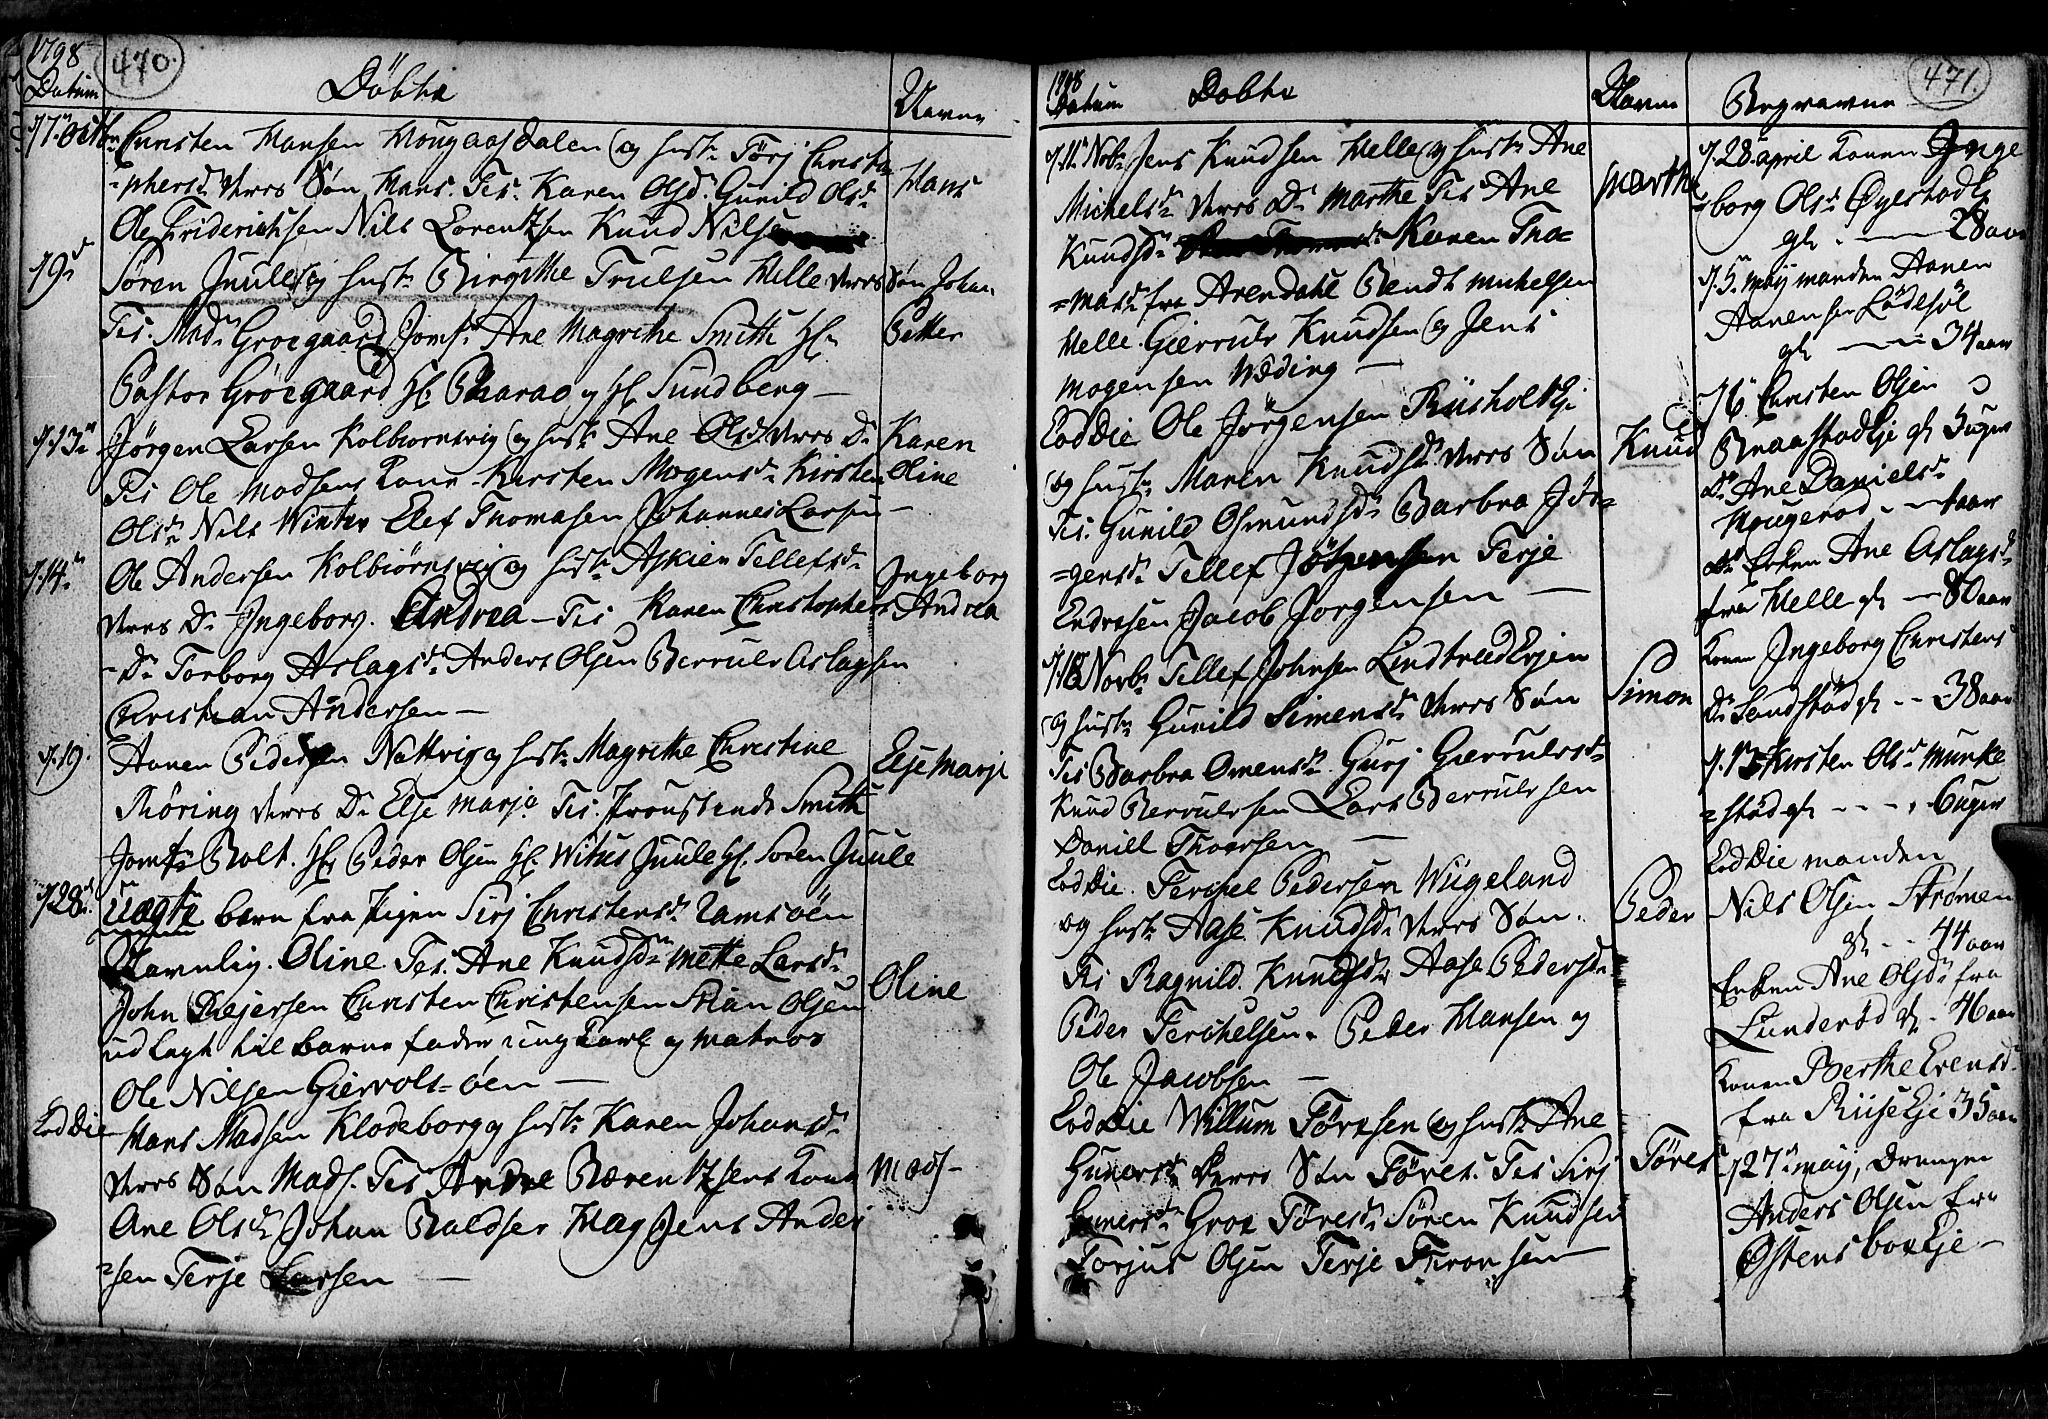 1798
470.
Datum
Döbte
Navne
d 7 octbr Christen Hansen Hougaasdalen og hustr Törj Christo
=phersdr deres Søn Hans. Tes. Karen Olsdr Gunild Olsdr
Hans
Ole Friderichsen Nils Lorentzen Knud Nilsen
d 9de
Søren Juule og hustr Birgithe Trulsen Helle deres Søn Johan
Petter
Tes. Madm Groegaard Jomfr Ane Magrethe Smith Hr.
Pastor Groegaard Hr. Pharao og Hr Sundberg —
d. 13de Jörgen Larsen Kolbiornsvig og hustr Ane Olsdr deres Dr
Karen
Oline
Tes Ole Madsens Kone Kirsten Mogensdr Kirsten
Olsdr Nils Winter Elef Thomasen Johannes Larsen —
d. 14de Ole Andersen Kolbiörnsvig og hustr Askier Tellefsdr
deres Dr Ingeborg Andrea — Tes Karen Christophers
Ingeborg
Andrea
=Dr Torborg Aslagsdr Anders Olsen Berrulv Aslagsen
Christian Andersen —
d. 19. Aanen Pedersen Nattvig og hustr Magrethe Christine
Thöring deres Dr Else Marja Tes. Proustinde Smith
Else Marje
Jomfr Bolt. Hr Peder Olsen Hr. Witus Juule Hr. Soren Juule
d 28de Uægte barn fra Pigen Sirj Christensdr Ramsöen
Navnlig. Oline Tes. Ane Knudsdr Mette Larsdr
John Rejersen Christen Christensen Stian Olsen
Oline
udlagt til barne fader ungkarl og matros
Ole Nilsen Giervols=öen —
Eod Die Hans Madsen Klodeborg og hustr Karen Johansdr
deres Søn Mads. Tes Andre Bærentzsens Kone
Mads —
Ane Olsdr Johan Baldser Hag Jens Ander
=sen Terje Larsen —
1798
Datum
Dobte
Navne
d. 11te Novbr Jens Knudsen Helle og hustr Ane
Michelsdr deres Dr Marthe Tes Ane
Marthe
Knudsdr Karen Tho=
=masdr fra Arendahl Bendt Michelsen
Helle Gierrulv Knudsen og Jens
Mogensen Wæding —
Eod Die Ole Jörgensen Riisholt Ej
og hustr Maren Knudsdr deres Søn
Knud
Tes. Gunild Osmundsdr Barbra Jör=
=gensdr Tellef Jörgensen Terje
Endresen Jacob Jorgensen —
d. 18 Novbr Tellef Johnsen Lindtved Ejen
og hustr Gunild Simensdr deres Søn
Simon
Tes Barbra Omensdr Gurj Gierrulvsdr
Knud Berrulvsen Lars Berrulvsen
Daniell Thoersen —
Eod Die. Terchel Pedersen Wiigeland
og hustr Aase Knudsdr deres Søn.
Peder
Tes Ragnild Knudsdr Aase Pedersdr
Peder Terchelsen Peder Hansen og
Ole Jacobsen —
Eod Die Willum Törresen og hustr Ane
Gunersdr deres Søn Töres. Tes Sirj
Töres
Gunersdr Groe Töresdr Søren Knudsen
Torjus Olsen Terje Thronsen
471.
Begravne
d. 28 april Konen Inge
=borg Olsdr Øyestad Ej
gl. — 28 aar
d. 5te maij manden Aanen
Aanensen Lödesöl
gl — 34 aar
d 6 Christen Olsen
Braastad Eje gl 3 uger
Do Ane Danielsdr
Hougerød — 4 aar
Do Enken Ane Aslagsdr
fra Helle gl — 80 aar
Konen Ingeborg Christens
Dr Sandstød gl — 38 aar
d. 13 Kirsten Olsdr Munke
=stød gl — 6 uger
Eod Die manden
Nils Olsen Strömen
gl — 44 aar
Enken Ane Olsdr fra
Lunderød gl — 46 aar
Konen Berthe Evensdr
fra Riise Eje 35 aar
d 27de maij, Drengen
Anders Olsen fra
Østensboe Eje —